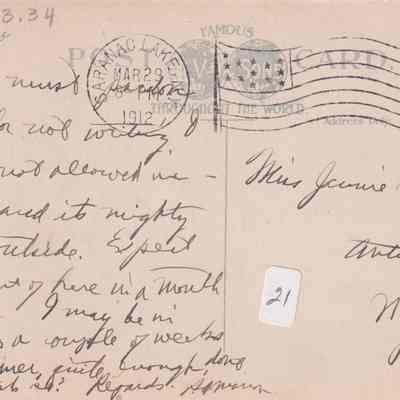 3.34
FAMOUS
POST CARD
THROUGHOUT THE WORLD
SARANAC LAKE
MAR 29
1912
Address Only
must pardon
for not writing
not allowed me -
and its mighty
outside. Expect
out of here in a month
I may be in
a couple of weeks
quite enough, dont
Regards.
Miss Jennie
21